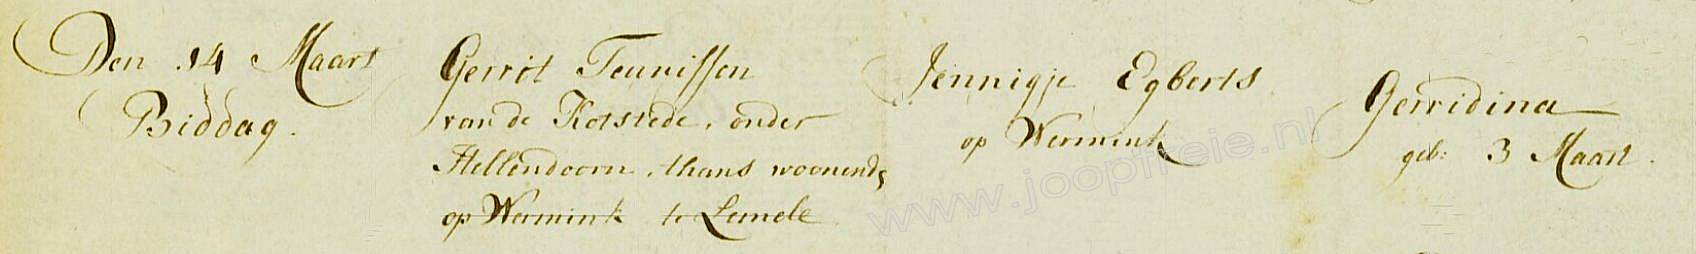 Den 14 Maart
Biddag.
Gerrit Teunissen
van de Kotstede, onder
Hellendoorn, thans woonende
op Wermink te Lemele
Jennigje Egberts
op Wermink
Gerridina
geb: 3 Maart.
www.joopfreie.nl